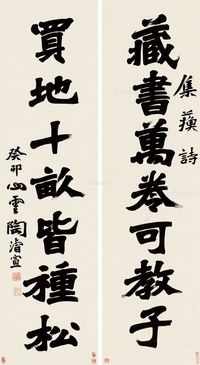 藏書萬卷可教子
集蘓詩
買地十畝皆種松
癸卯心雲陶濬宣